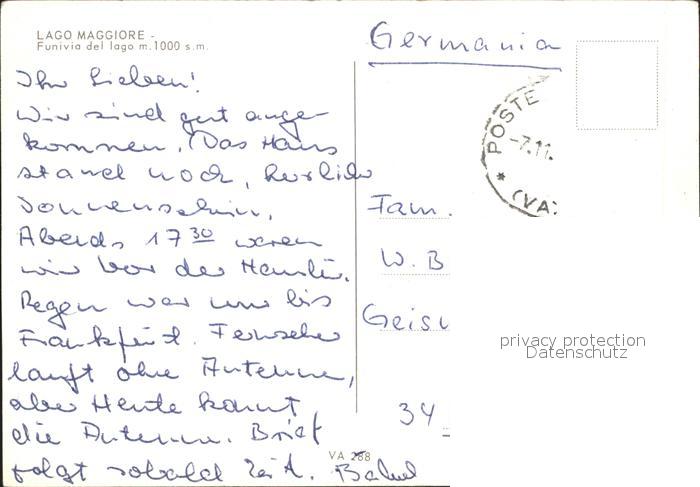 LAGO MAGGIORE -
Funivia del lago m. 1000 s.m.
Germania
Ihr Lieben!
Wir sind gut ange-
kommen. Das Haus
stand noch, herlicher
Sonnenschein.
Abends 17 30 waren
wir vor der Haustür.
Regen war nur bis
Frankfurt. Fernseher
lauft ohne Antenne,
aber Heute kommt
die Antenne. Brief
folgt sobald Zeit.
POSTE
-7.11.
(VA)
Fam.
W. B
Geis
34
privacy protection
Datenschutz
VA 288